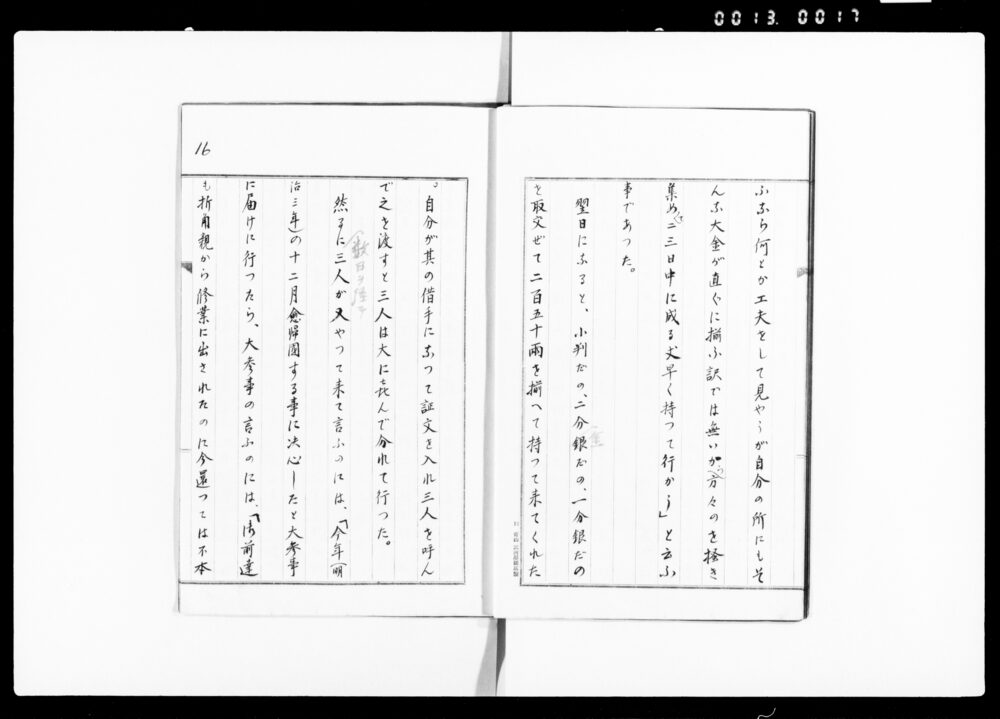 0013.0017
ふなら何とか工夫をして見やうが自分の所にもそ
んな大金が直ぐに揃ふ訳では無いから方々のを掻き
集めて二三日中に成る丈早く持つて行かう」と云ふ
事であつた。
翌日になると、小判だの、二分銀だの、一分銀だの
を取交ぜて二百五十両を揃へて持つて来てくれた
。自分が其の借手になつて証文を入れ三人を呼ん
で之を渡すと三人は大に喜んで分れて行つた。
(数日を経て
然るに三人が又やつて来て言ふのには、「今年(明
治三年)の十二月愈帰国する事に決心したと大参事
に届けに行つたら、大参事の言ふのには、「御前達
も折角親から修業に出されたのに今還つては不本
16